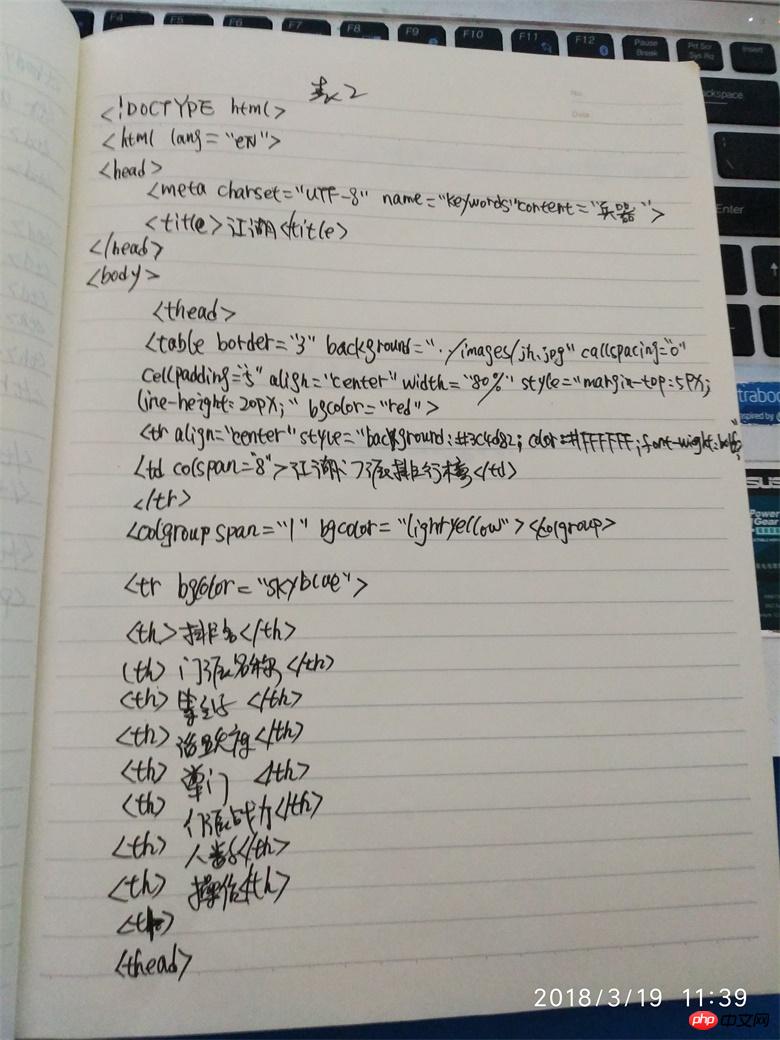 F4 F5 F6 F7 F8 F9 F10 F11 F12 Pause Break Prt Scr Sys Rq Insert
表2
No.
Date
<!DOCTYPE html>
<html lang="en">
<head>
<meta charset="UTF-8" name="keywords" content="兵器">
<title>江湖</title>
</head>
<body>
<thead>
<table border="3" background="./images/jh.jpg" callspacing="0"
cellpadding="5" align="center" width="80%" style="margin-top:5px;
line-height:20px;" bgcolor="red">
<tr align="center" style="background:#3c4d82; color:#FFFFFF;
<td colspan="8">江湖门派排行榜</td>
</tr>
<colgroup span="1" bgcolor="lightyellow"></colgroup>
<tr bgcolor="skyblue">
<th>排名</th>
<th>门派名称</th>
<th></th>
<th></th>
<th>掌门</th>
<th>战力</th>
<th>人数</th>
<th>操作</th>
<thead>
backspace
Enter
Power
Gear
2018/3/19 11:39
php中文网